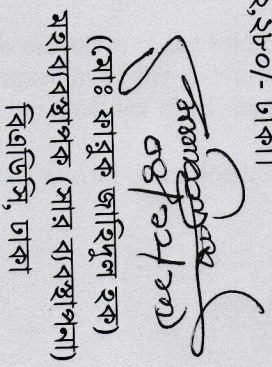 ২,২৮০/- টাকা।
(মোঃ ফারুক জাহিদুল হক)
মহাব্যবস্থাপক (সার ব্যবস্থাপনা)
বিএডিসি, ঢাকা